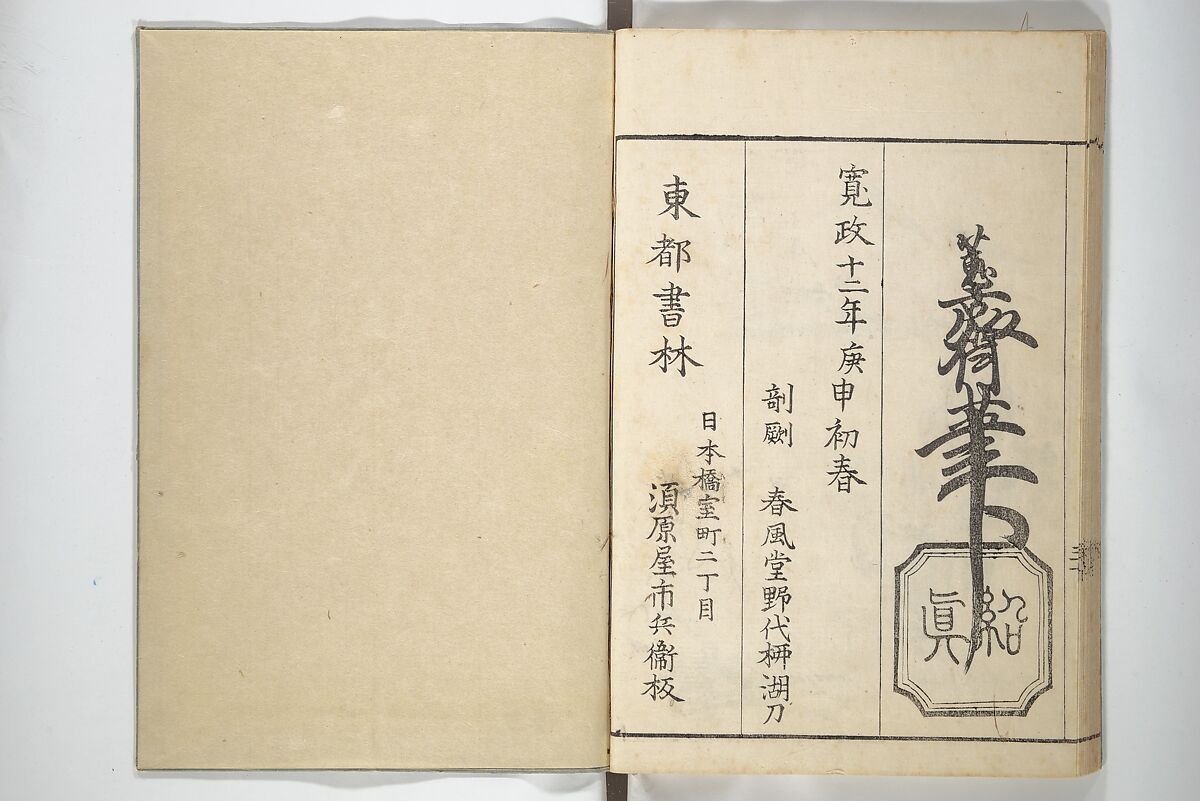 蕙齋筆
紹眞
寛政十二年庚申初春
剞劂 春風堂野代柳湖刀
東都書林
日本橋室町二丁目
須原屋市兵衛板